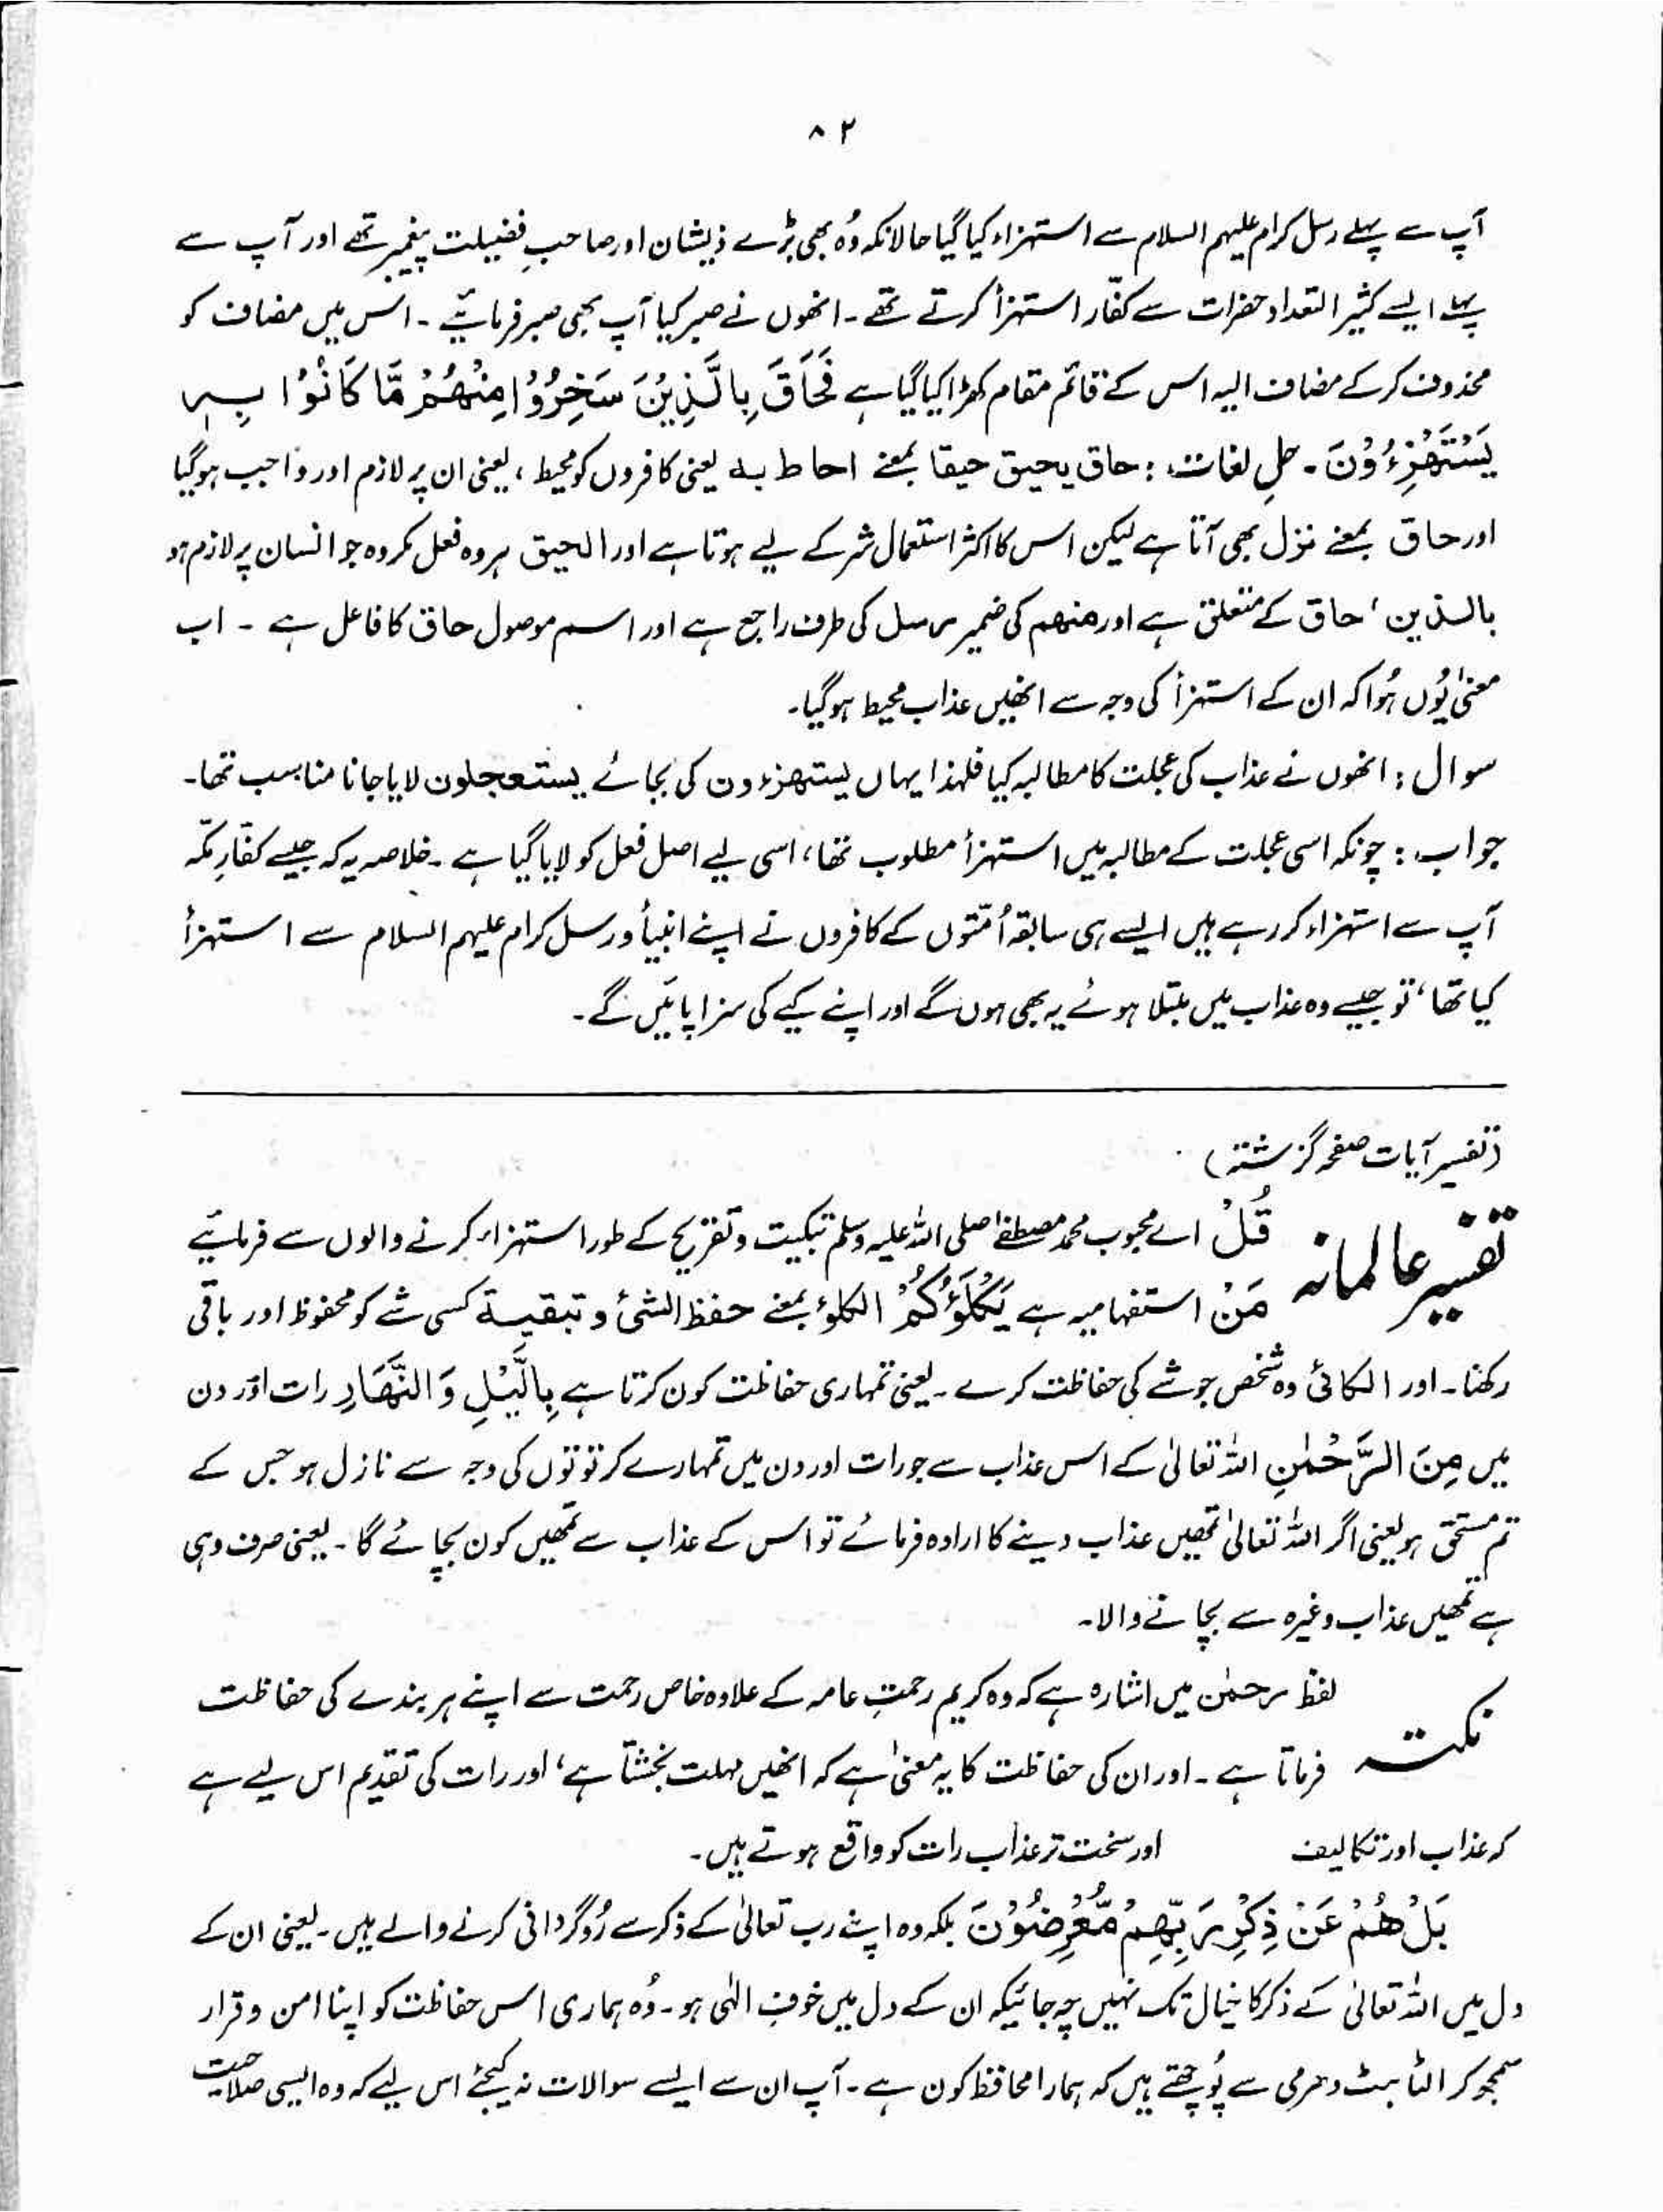 ۸۲
آپ سے پہلے رسل کرام علیہم السلام سے استہزاء کیا گیا حالانکہ وُہ بھی بڑے ذیشان اور صاحبِ فضیلت پیغمبر تھے اور آپ سے
پہلے ایسے کثیر التعداد حضرات سے کفّار استہزأ کرتے تھے۔ انھوں نے صبر کیا آپ بھی صبر فرمائیے۔ اس میں مضاف کو
محذوف کر کے مضاف الیہ اس کے قائم مقام کھڑا کیا گیا ہے فَحَاقَ بِالَّذِیْنَ سَخِرُوْا مِنْھُمْ مَّا کَانُوْا بِہٖ
یَسْتَھْزِءُوْنَ۔ حلِ لغات : حاق یحیق حیقا بمعنے احاط بہ یعنی کافروں کو محیط ، یعنی ان پر لازم اور واجب ہوگیا
اور حاق بمعنے نزل بھی آتا ہے لیکن اس کا اکثر استعمال شر کے لیے ہوتا ہے اور الحیق ہر وہ فعل مکروہ جو انسان پر لازم ہو
بالذین ، حاق کے متعلق ہے اور منھم کی ضمیر رسل کی طرف راجع ہے اور اسم موصول حاق کا فاعل ہے ۔ اب
معنیٰ یُوں ہُوا کہ ان کے استہزأ کی وجہ سے انھیں عذاب محیط ہوگیا۔
سوال : انھوں نے عذاب کی عجلت کا مطالبہ کیا فلہٰذا یہاں یستھزءون کی بجائے یستعجلون لایا جانا مناسب تھا۔
جواب : چونکہ اسی عجلت کے مطالبہ میں استہزأ مطلوب تھا، اسی لیے اصل فعل کو لایا گیا ہے ۔ خلاصہ یہ کہ جیسے کفّارِ مکّہ
آپ سے استہزاء کر رہے ہیں ایسے ہی سابقہ اُمّتوں کے کافروں نے اپنے انبیأ و رسل کرام علیہم السلام سے استہزأ
کیا تھا، تو جیسے وہ عذاب میں مبتلا ہوئے یہ بھی ہوں گے اور اپنے کیے کی سزا پائیں گے۔
(تفسیر آیات صفحہ گزشتہ)
تفسیر عالمانہ قُلْ اے محبوب محمد مصطفےٰ صلی اللہ علیہ وسلم تبکیت و تقریح کے طور استہزاء کرنے والوں سے فرمائیے
مَنْ استفہامیہ ہے یَکْلَؤُکُمْ الکلؤ بمعنے حفظ الشئ و تبقیۃ کسی شے کو محفوظ اور باقی
رکھنا۔ اور الکالئ وہ شخص جو شے کی حفاظت کرے ۔ یعنی تمہاری حفاظت کون کرتا ہے بِالَّیْلِ وَالنَّھَارِ رات اور دن
میں مِنَ الرَّحْمٰنِ اللہ تعالیٰ کے اس عذاب سے جو رات اور دن میں تمہارے کرتوتوں کی وجہ سے نازل ہو جس کے
تم مستحق ہو یعنی اگر اللہ تعالیٰ تمھیں عذاب دینے کا ارادہ فرمائے تو اس کے عذاب سے تمھیں کون بچائے گا۔ یعنی صرف وہی
ہے تمھیں عذاب وغیرہ سے بچانے والا۔
لفظ رحمٰن میں اشارہ ہے کہ وہ کریم رحمتِ عامہ کے علاوہ خاص رحمت سے اپنے ہر بندے کی حفاظت
نکتہ فرماتا ہے ۔ اور ان کی حفاظت کا یہ معنیٰ ہے کہ انھیں مہلت بخشتا ہے، اور رات کی تقدیم اس لیے ہے
کہ عذاب اور تکالیف اور سخت تر عذاب رات کو واقع ہوتے ہیں۔
بَلْ ھُمْ عَنْ ذِکْرِ رَبِّھِمْ مُّعْرِضُوْنَ بلکہ وہ اپنے رب تعالیٰ کے ذکر سے رُوگردانی کرنے والے ہیں۔ یعنی ان کے
دل میں اللہ تعالیٰ کے ذکر کا خیال تک نہیں چہ جائیکہ ان کے دل میں خوفِ الٰہی ہو۔ وُہ ہماری اس حفاظت کو اپنا امن و قرار
سمجھ کر الٹا ہٹ دھرمی سے پُوچھتے ہیں کہ ہمارا محافظ کون ہے ۔ آپ ان سے ایسے سوالات نہ کیجئے اس لیے کہ وہ ایسی صلاحیت